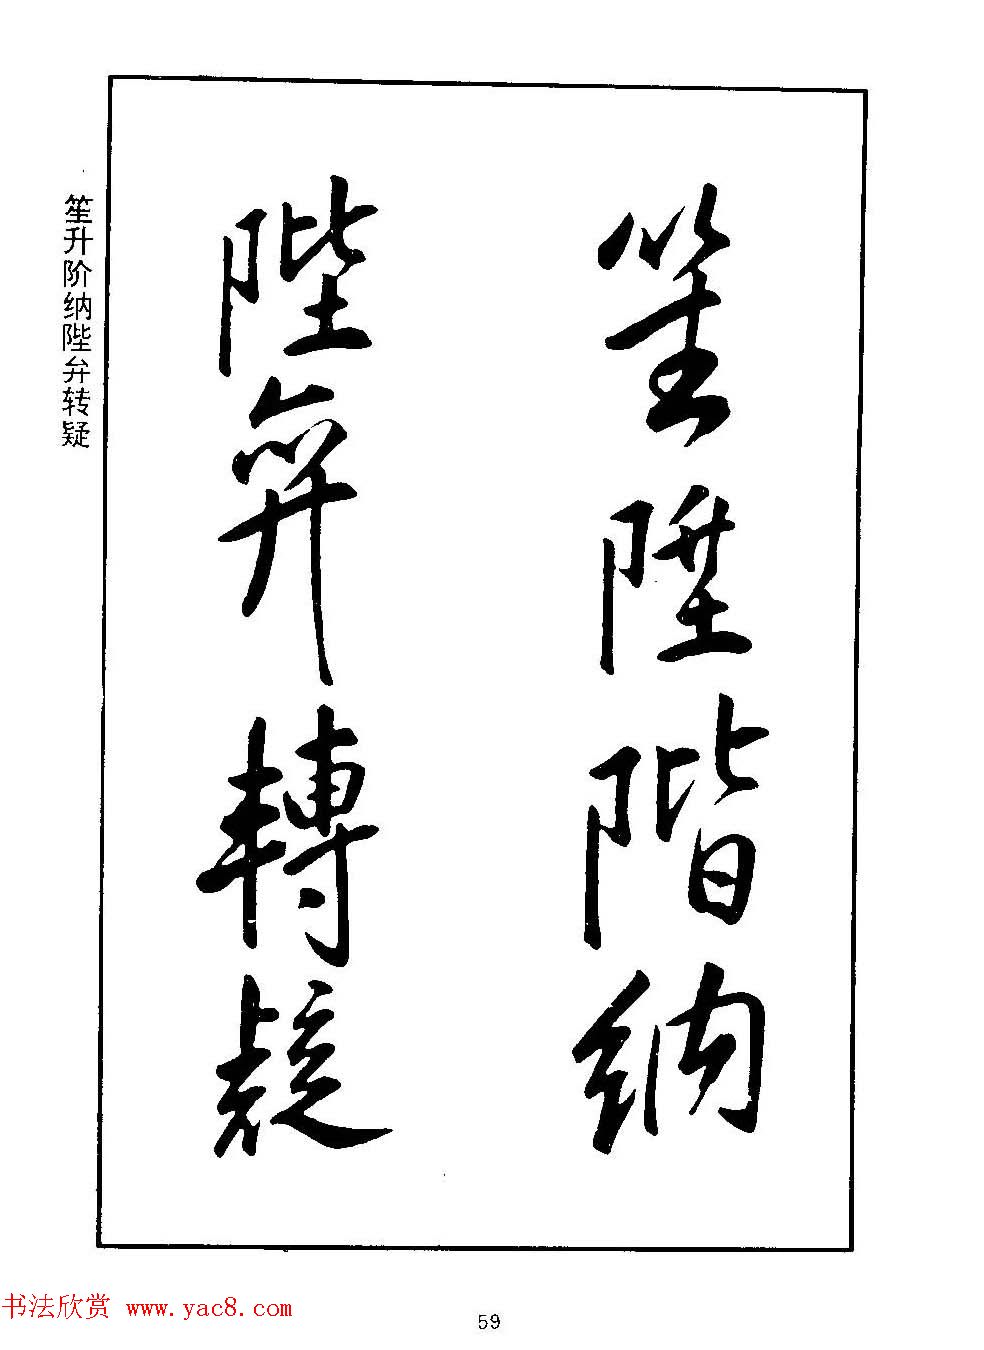 笙陞階納
陛弁轉疑
笙升阶纳陛弁转疑
书法欣赏 www.yac8.com
59